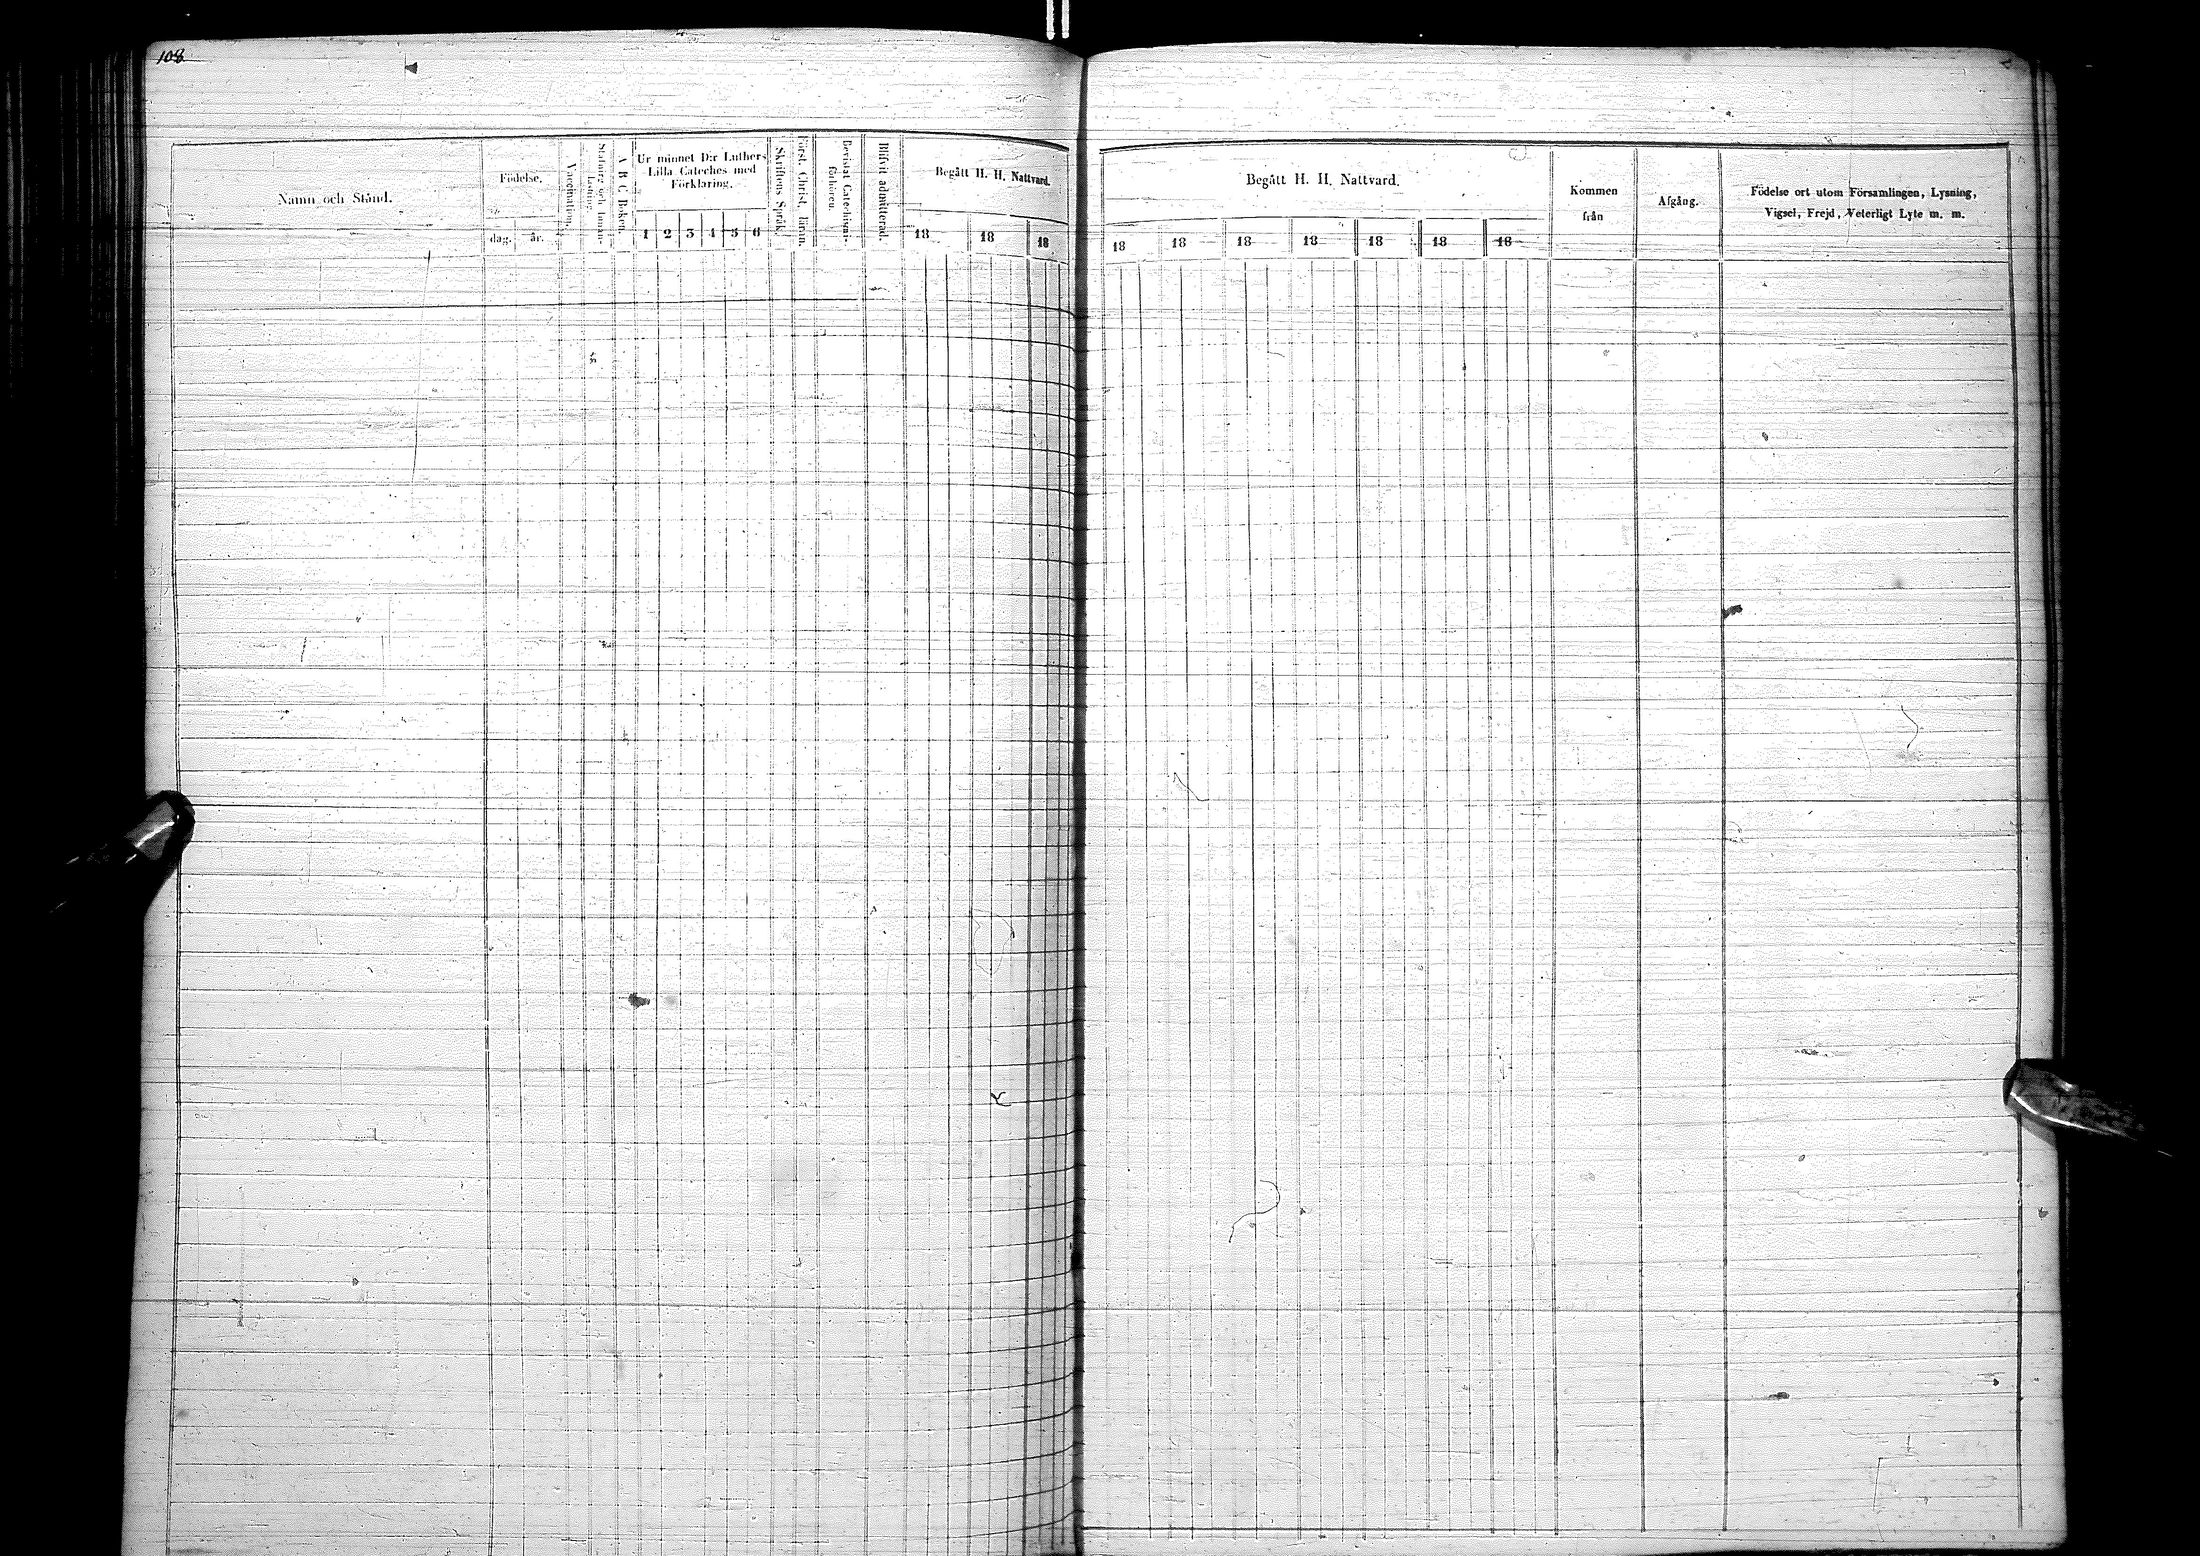 108
Namn och Stånd.
Födelse.
dag.
år.
Vaccination.
Stafning och Innan-
läsning
A B C Boken.
Ur minnet D:r Luthers
Lilla Cateches med
Förklaring.
1 2 3 4 5 6
Skriftens Språk.
Först. Christ. läran.
Bevistat Catechismi-
förhören.
Blifvit admitterad.
Begått H. H. Nattvard.
18 18 18
Begått H. H. Nattvard.
18 18 18 18 18 18 18
Kommen
från
Afgång.
Födelse ort utom Församlingen, Lysning,
Vigsel, Frejd, Veterligt Lyte m. m.